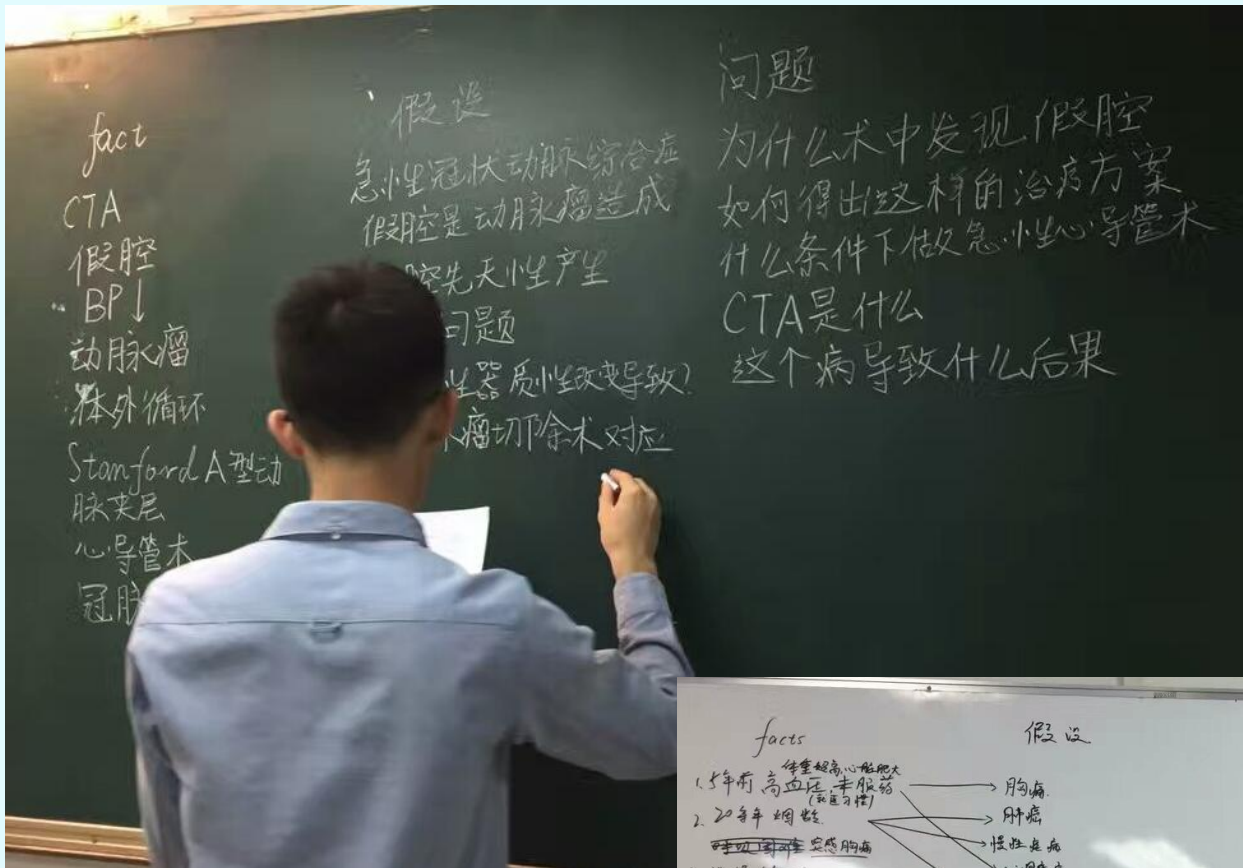 fact
CTA
假腔
BP↓
动脉瘤
体外循环
Stanford A型动
脉夹层
心导管术
冠脉
假设
急性冠状动脉综合症
假腔是动脉瘤造成
腔先天性产生
问题
性器质性改变导致?
瘤切除术对应
问题
为什么术中发现假腔
如何得出这样的治疗方案
什么条件下做急性心导管术
CTA是什么
这个病导致什么后果
facts
体重超高,心脏肥大
1. 5年前 高血压,未服药
2. 20多年烟龄
突感胸痛
假设
胸痛
肺癌